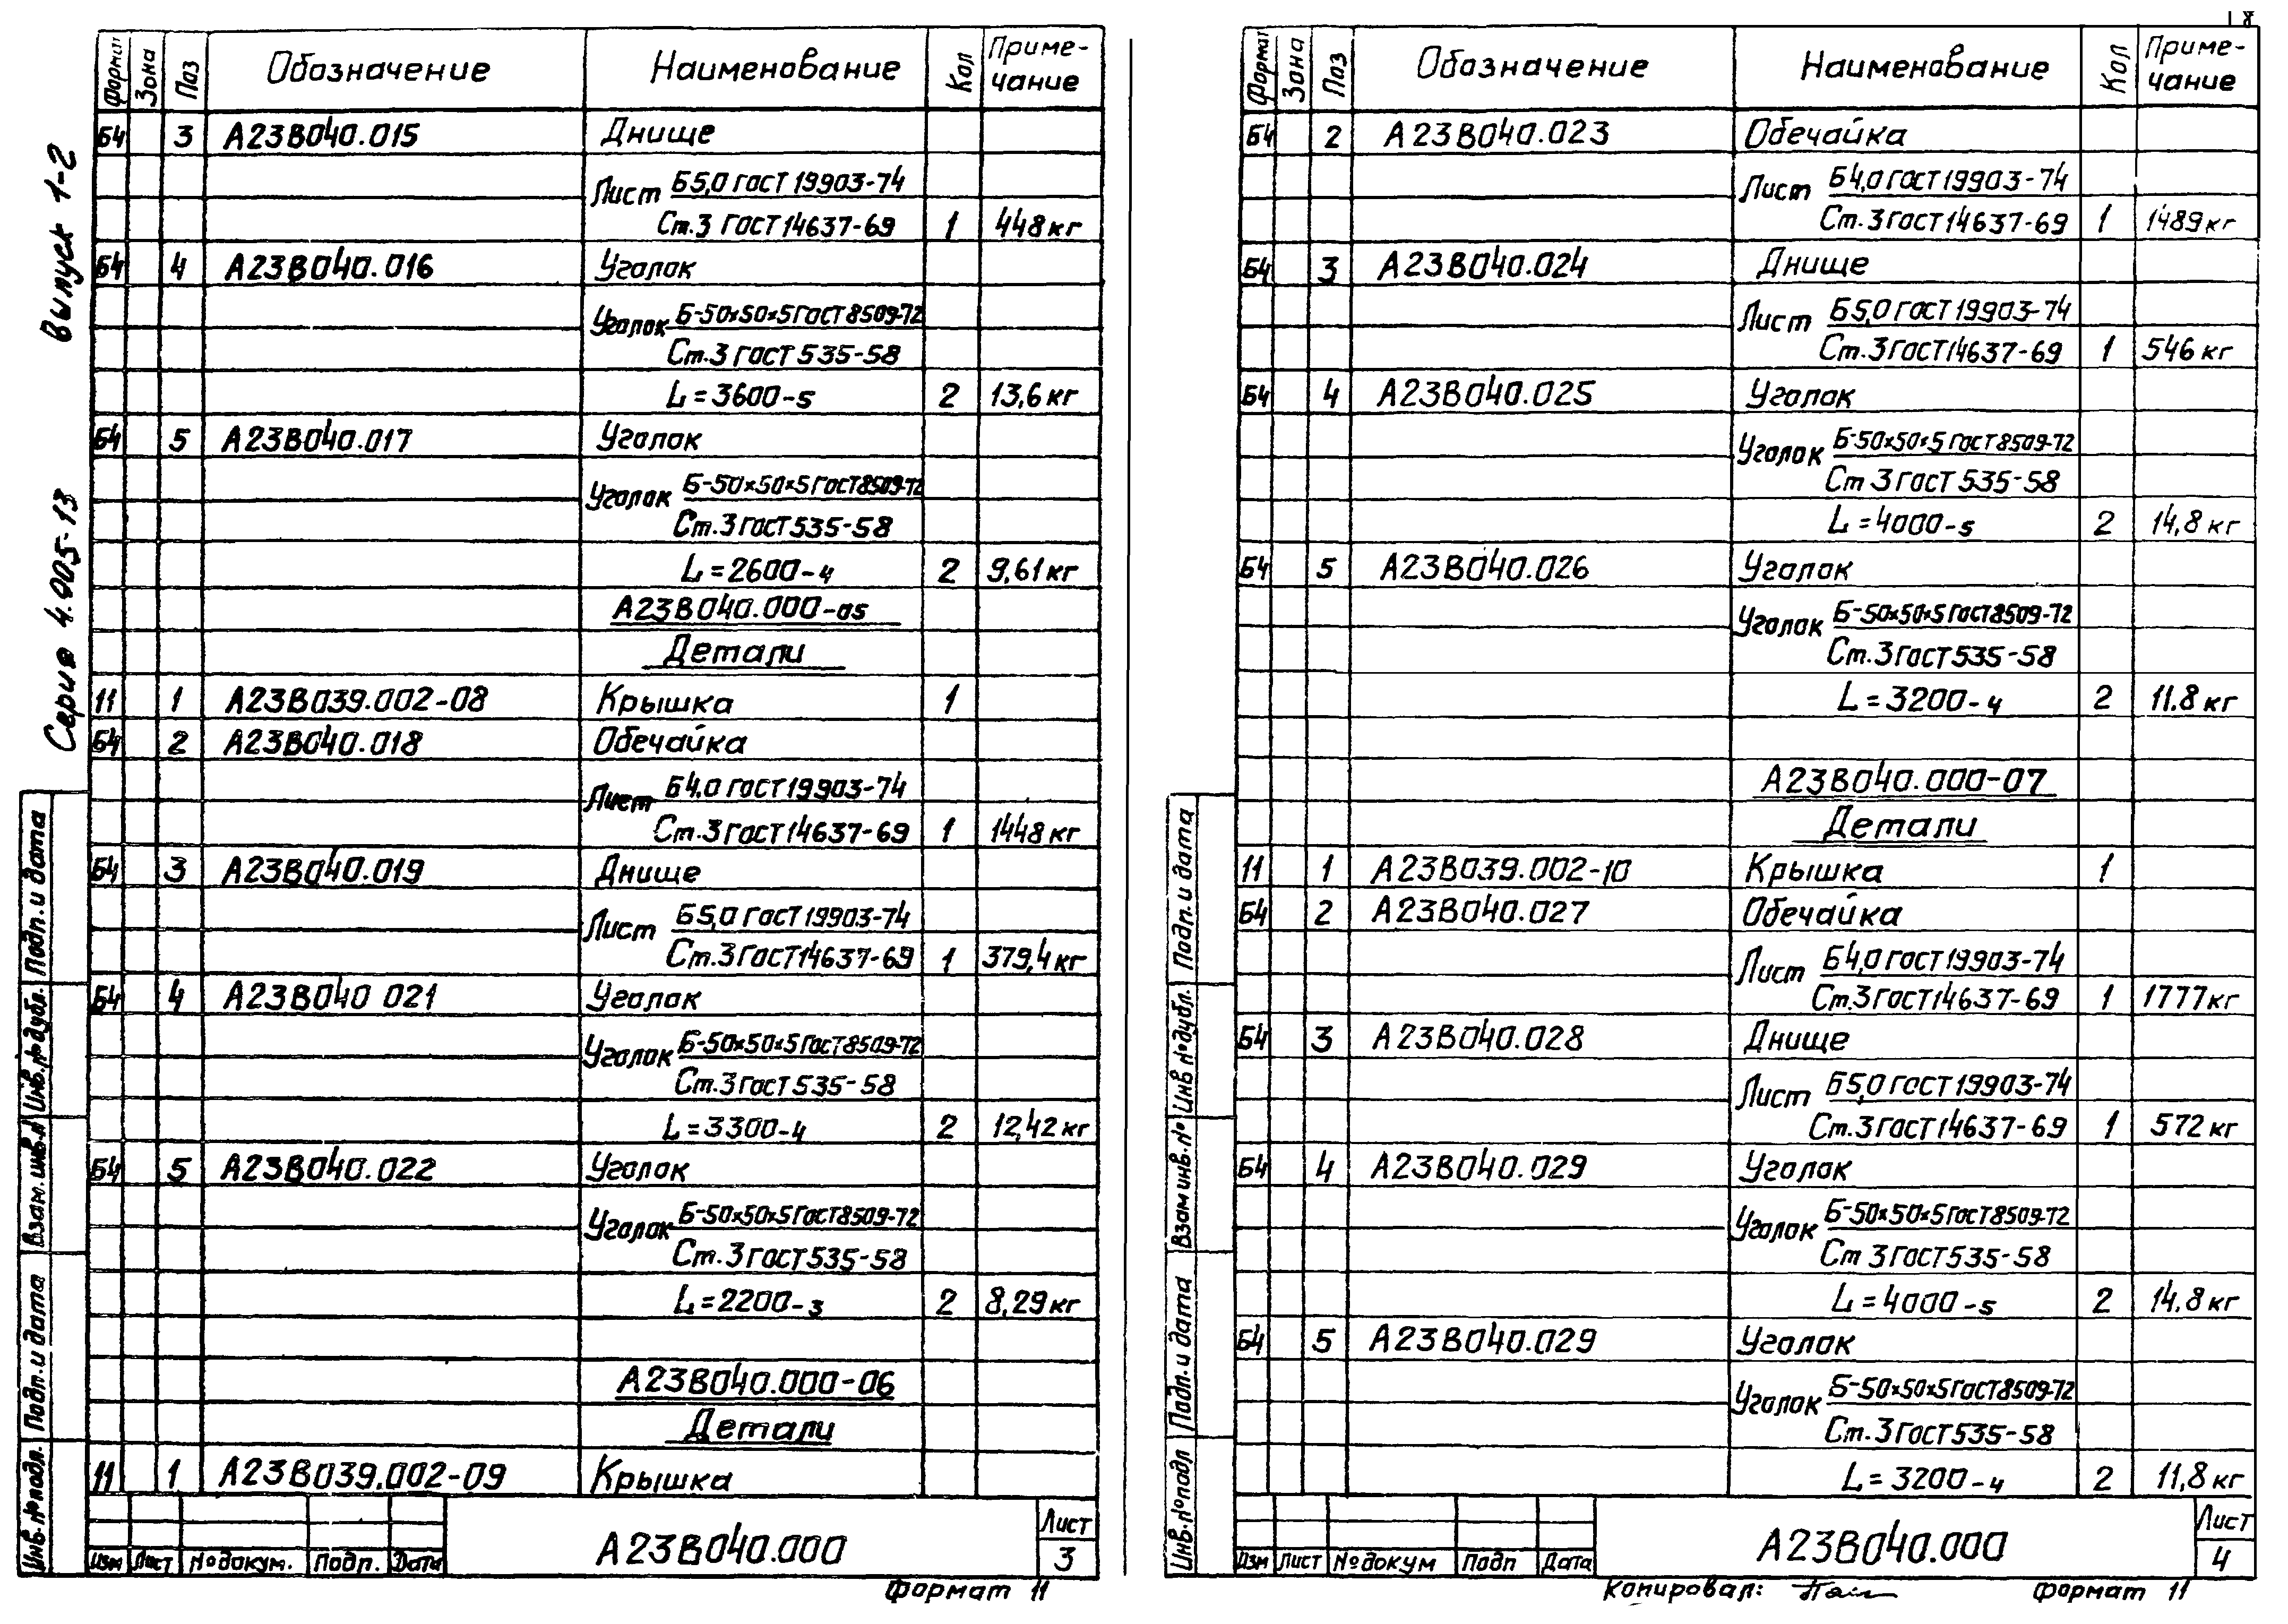 Серия 4.005-13 Выпуск 1-2
Формат Зона Поз Обозначение Наименование Кол Приме-чание
Б4 3 А23В040.015 Днище
Лист Б5,0 ГОСТ 19903-74
Ст.3 ГОСТ 14637-69 1 448кг
Б4 4 А23В040.016 Уголок
Уголок Б-50х50х5 ГОСТ 8509-72
Ст.3 ГОСТ 535-58
L=3600-5 2 13,6кг
Б4 5 А23В040.017 Уголок
Уголок Б-50х50х5 ГОСТ 8509-72
Ст.3 ГОСТ 535-58
L=2600-4 2 9,61кг
А23В040.000-05
Детали
11 1 А23В039.002-08 Крышка 1
Б4 2 А23В040.018 Обечайка
Лист Б4,0 ГОСТ 19903-74
Ст.3 ГОСТ 14637-69 1 1448кг
Б4 3 А23В040.019 Днище
Лист Б5,0 ГОСТ 19903-74
Ст.3 ГОСТ 14637-69 1 379,4кг
Б4 4 А23В040 021 Уголок
Уголок Б-50х50х5 ГОСТ 8509-72
Ст.3 ГОСТ 535-58
L=3300-4 2 12,42кг
Б4 5 А23В040.022 Уголок
Уголок Б-50х50х5 ГОСТ 8509-72
Ст.3 ГОСТ 535-58
L=2200-3 2 8,29кг
А23В040.000-06
Детали
11 1 А23В039.002-09 Крышка
Инв.№подл. Подп.и дата Взам.инв.№ Инв.№дубл. Подп.и дата
Изм Лист №докум. Подп. Дата
А23В040.000
Лист
3
Формат 11
Формат Зона Поз Обозначение Наименование Кол Приме-чание
Б4 2 А23В040.023 Обечайка
Лист Б4,0 ГОСТ 19903-74
Ст.3 ГОСТ 14637-69 1 1489кг
Б4 3 А23В040.024 Днище
Лист Б5,0 ГОСТ 19903-74
Ст.3 ГОСТ 14637-69 1 546кг
Б4 4 А23В040.025 Уголок
Уголок Б-50х50х5 ГОСТ 8509-72
Ст 3 ГОСТ 535-58
L=4000-5 2 14,8кг
Б4 5 А23В040.026 Уголок
Уголок Б-50х50х5 ГОСТ 8509-72
Ст.3 ГОСТ 535-58
L=3200-4 2 11.8кг
А23В040.000-07
Детали
11 1 А23В039.002-10 Крышка 1
Б4 2 А23В040.027 Обечайка
Лист Б4,0 ГОСТ 19903-74
Ст.3 ГОСТ 14637-69 1 1777кг
Б4 3 А23В040.028 Днище
Лист Б5,0 ГОСТ 19903-74
Ст.3 ГОСТ 14637-69 1 572кг
Б4 4 А23В040.029 Уголок
Уголок Б-50х50х5 ГОСТ 8509-72
Ст 3 ГОСТ 535-58
L=4000-5 2 14.8кг
Б4 5 А23В040.029 Уголок
Уголок Б-50х50х5 ГОСТ 8509-72
Ст.3 ГОСТ 535-58
L=3200-4 2 11,8кг
Инв.№подл Подп.и дата Взам инв.№ Инв №дубл. Подп.и дата
Изм Лист №докум Подп Дата
А23В040.000
Лист
4
Копировал: Формат 11